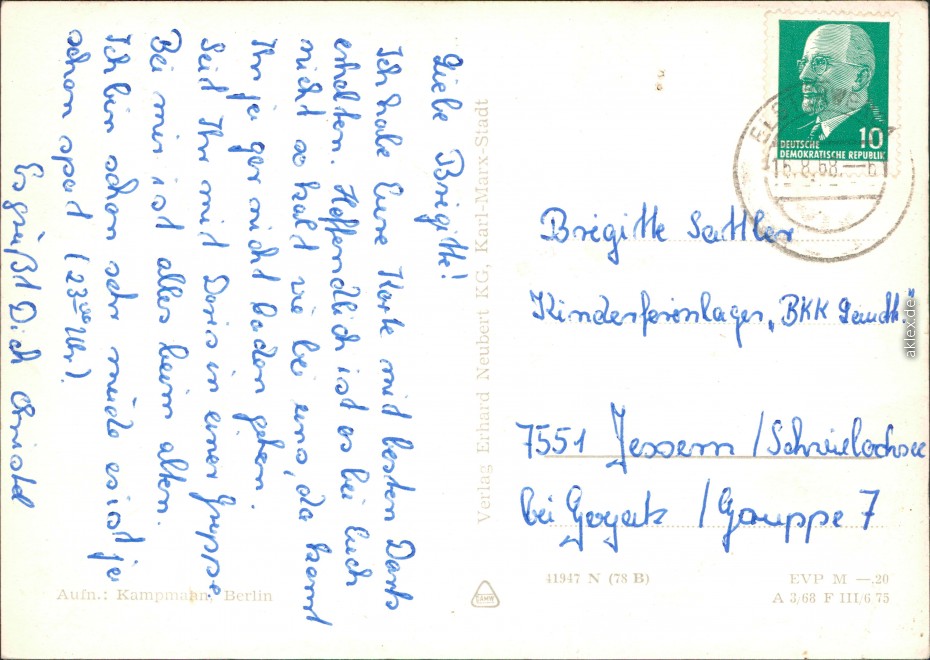 Liebe Brigitte!
Ich habe Eure Karte mit besten Dank
erhalten. Hoffendlich ist es bei Euch
nicht so kalt wie bei uns, da könnt
Ihr ja gar nicht baden gehen.
Seit Ihr mit Doris in einer Gruppe
Bei mir ist alles beim alten.
Ich bin schon sehr müde es ist ja
schon spät (23⁰⁰ Uhr).
Es grüßt Dich Christel
Verlag Erhard Neubert KG, Karl-Marx-Stadt
Aufn.: Kampmann, Berlin
10
DEUTSCHE
DEMOKRATISCHE REPUBLIK
16.8.68.–6
Brigitte Sattler
Kinderferienlager „BKK
7551 Jessern / Schwielochsee
bei Goyatz / Gruppe 7
41947 N (78 B)
EVP M —,20
A 3/68 F III/6 75
aklex.de